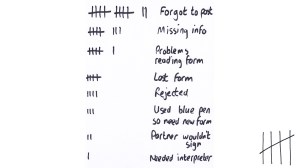 Forgot to post
Missing info
Problems
reading form
Lost form
Rejected
Used blue pen
so need new form
Partner wouldn't
sign
Needed interpreter